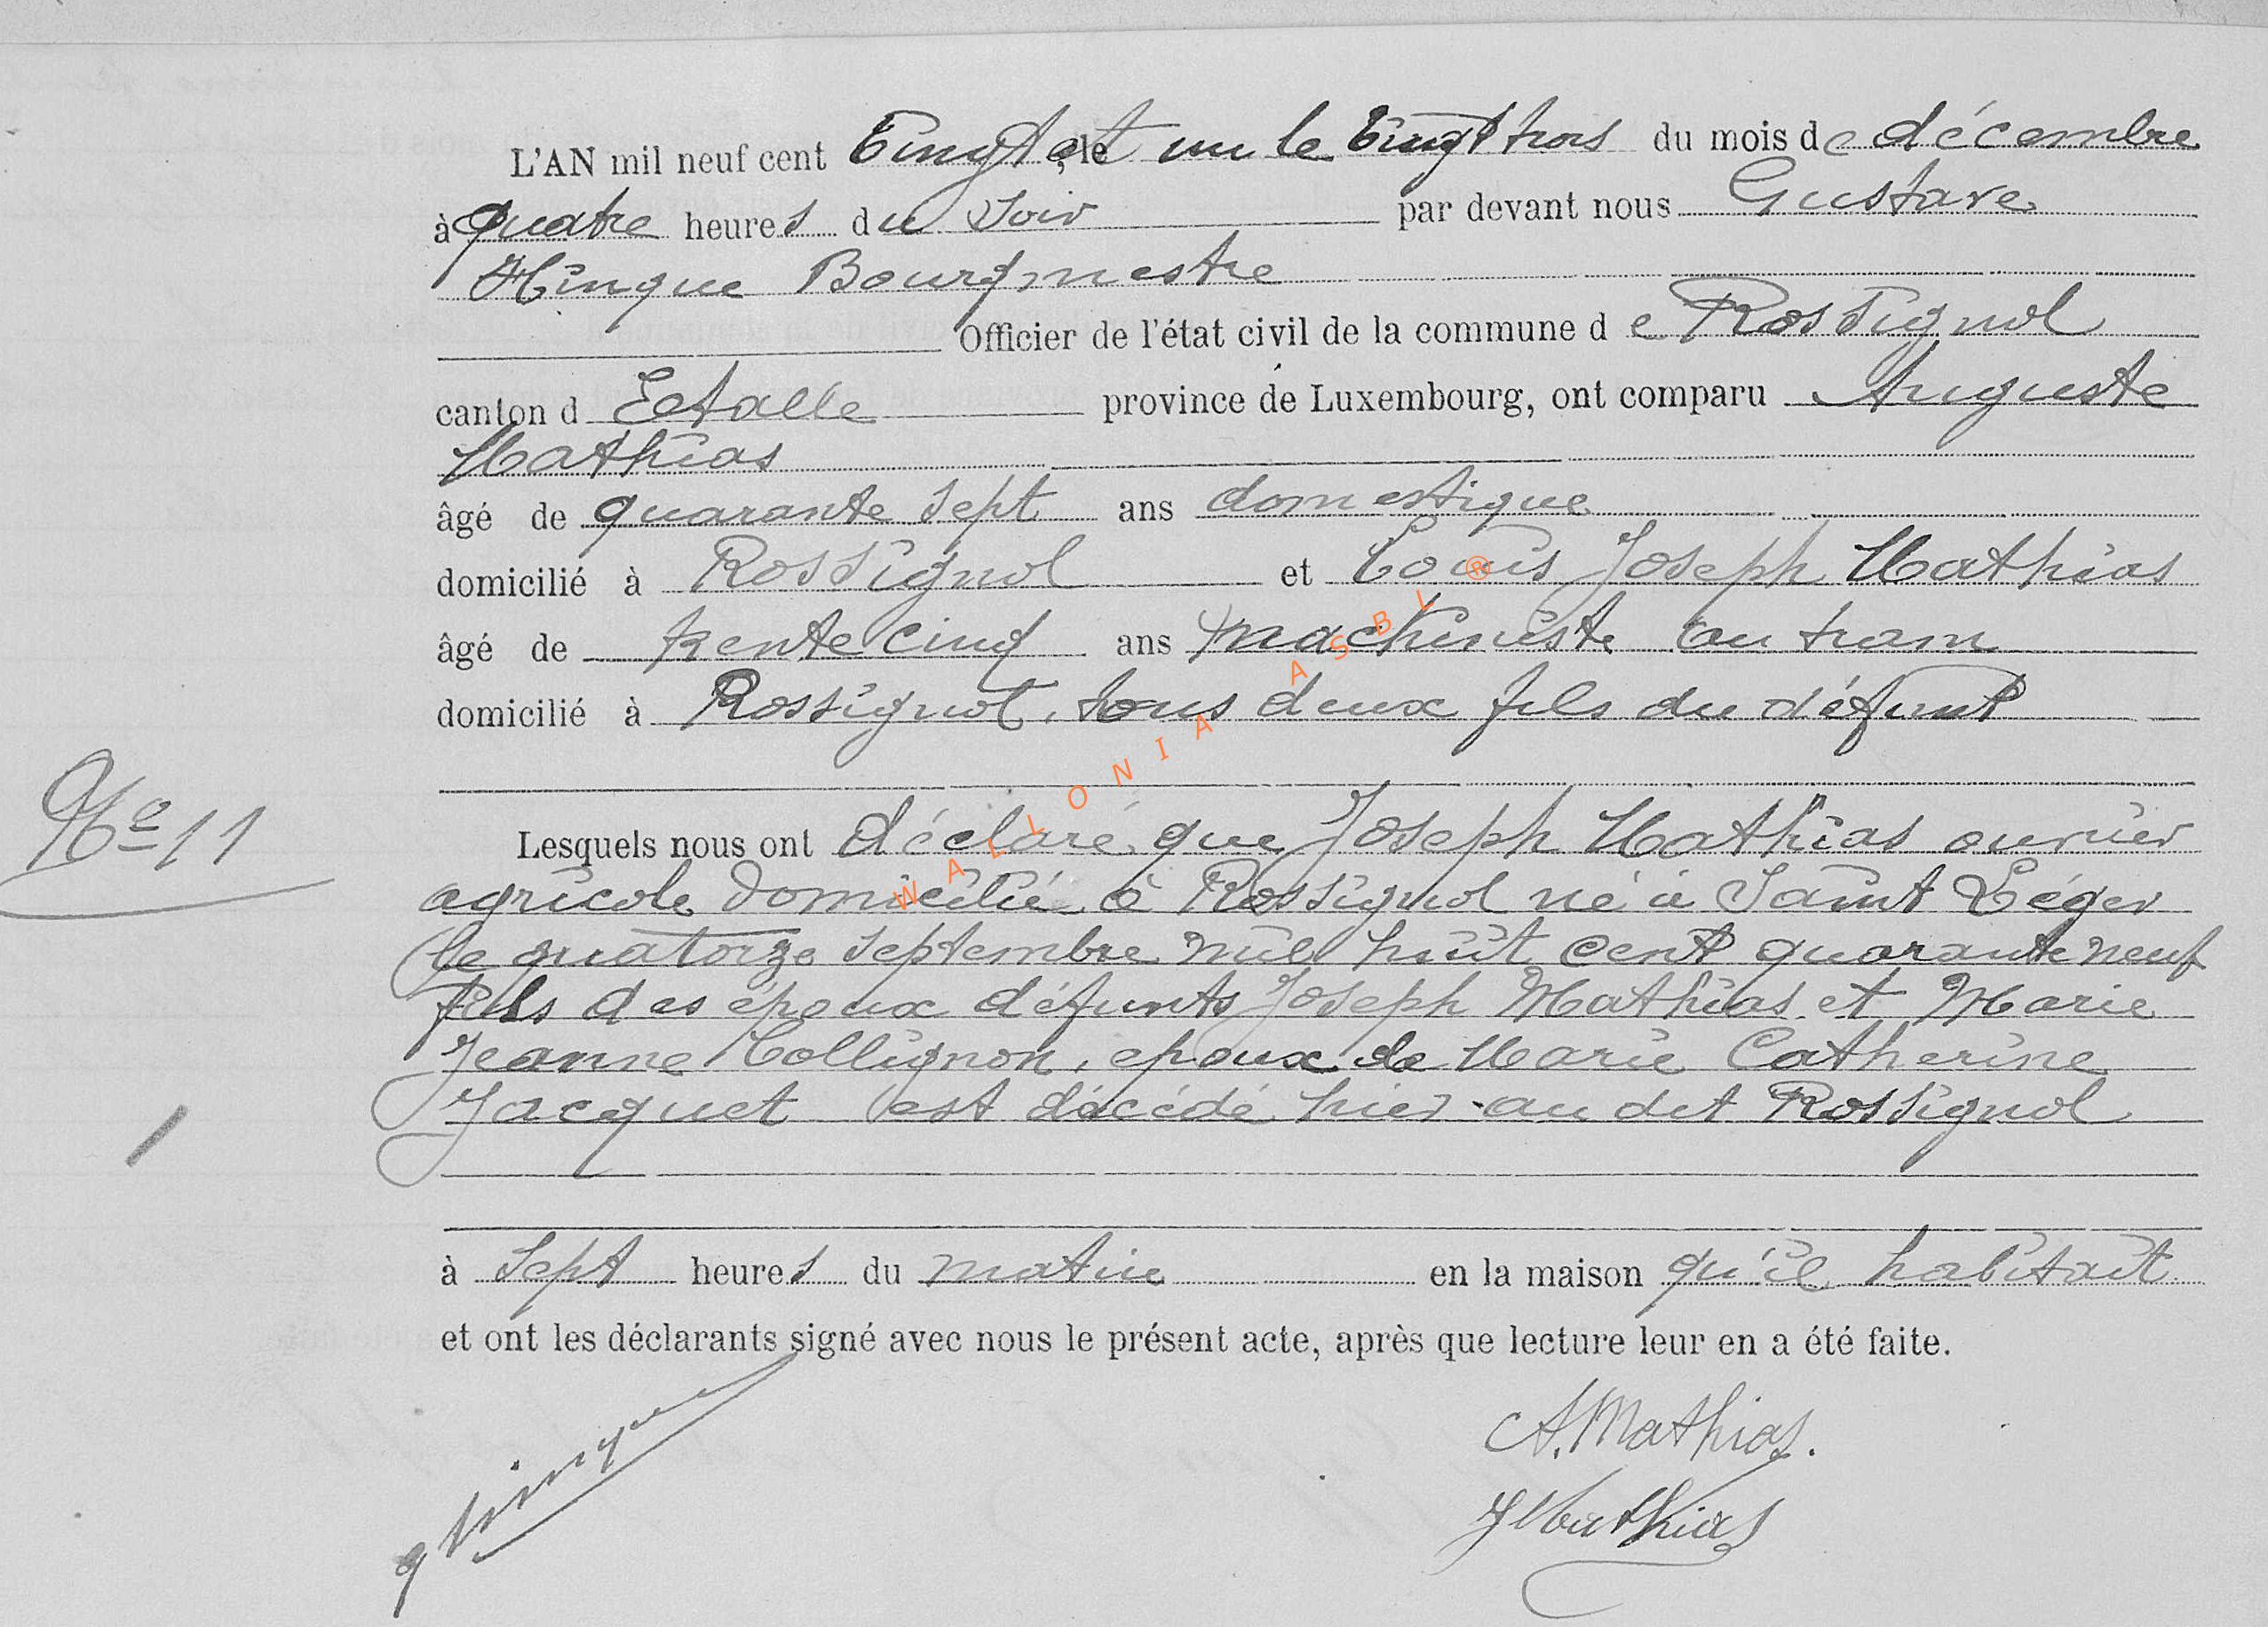 L'AN mil neuf cent Vingt et , le un le Vingt trois du mois de décembre
à quatre heures du soir par devant nous Gustave
Hinque Bourgmestre
Officier de l'état civil de la commune de Rossignol
canton d Etalle province de Luxembourg, ont comparu Auguste
Mathias
âgé de quarante sept ans domestique
domicilié à Rossignol et Louis Joseph Mathias
âgé de trente cinq ans machiniste au tram
domicilié à Rossignol, tous deux fils du défunt
No 11
Lesquels nous ont déclaré que Joseph Mathias ouvrier
agricole domicilié à Rossignol né à Saint Léger
le quatorze septembre mil huit cent quarante neuf
fils des époux défunts Joseph Mathias et Marie
Jeanne Collignon, epoux de Marie Catherine
Jacquet est décédé hier au dit Rossignol
à sept heures du matin en la maison qu'il habitait
et ont les déclarants signé avec nous le présent acte, après que lecture leur en a été faite.
A. Mathias.
G Hinque
J Mathias
WALLONIA ASBL ®